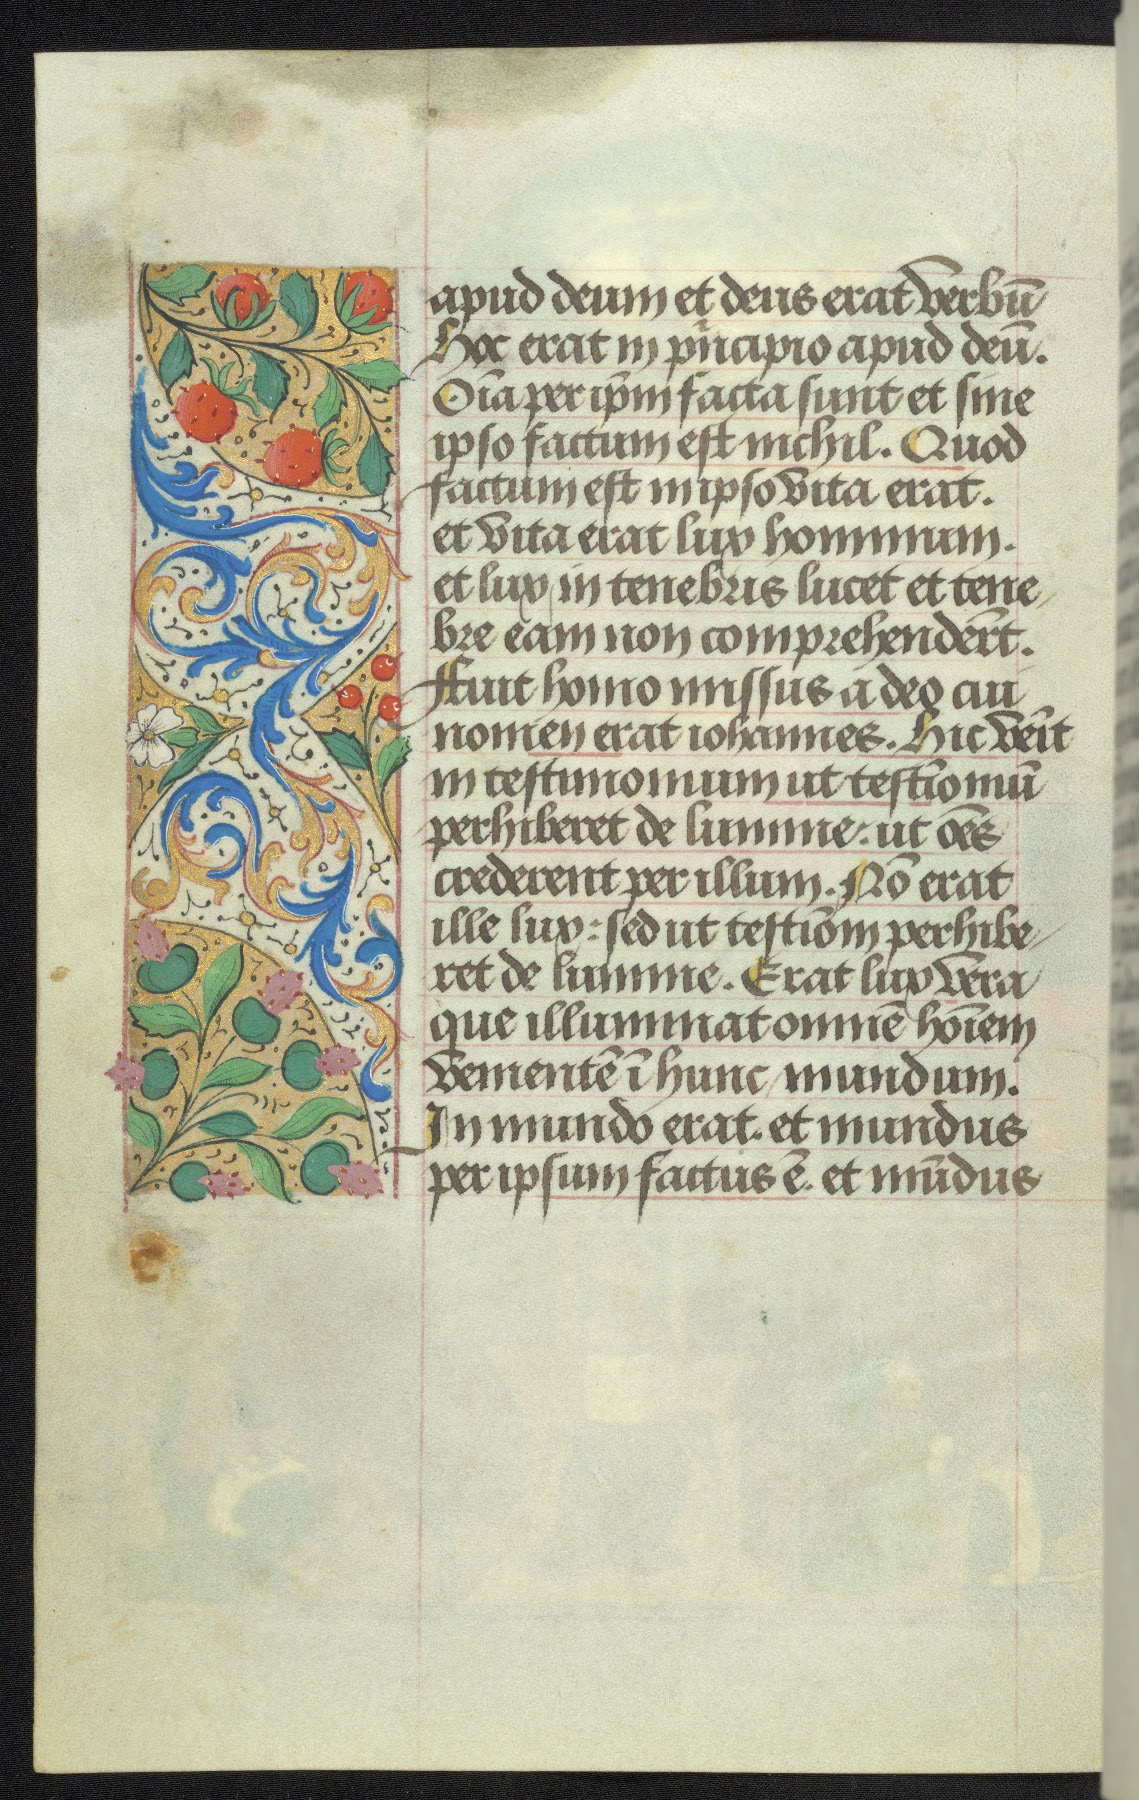 apud deum et deus erat verbū
Hoc erat in pͥncipio apud deū.
Oīa per ip̄m facta sunt et sine
ipso factum est nichil. Quod
factum est in ipso vita erat.
et vita erat lux hominum.
et lux in tenebris lucet et tene
bre eam non comprehender̄t.
Fuit homo missus a deo cui
nomen erat iohannes. Hic ven̄it
in testimonium ut testīoniū
perhiberet de lumine: ut oēs
crederent per illum. Nō erat
ille lux: sed ut testīōm perhibe
ret de lumine. Erat lux vera
que illuminat omnē hoīem
venientē ī hunc mundum.
In mundo erat. et mundus
per ipsum factus ē. et mūdus